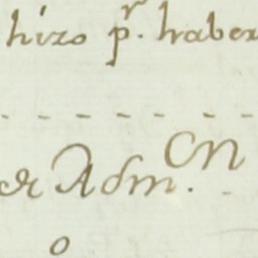 hizo pr. haber
er Adm.on
o